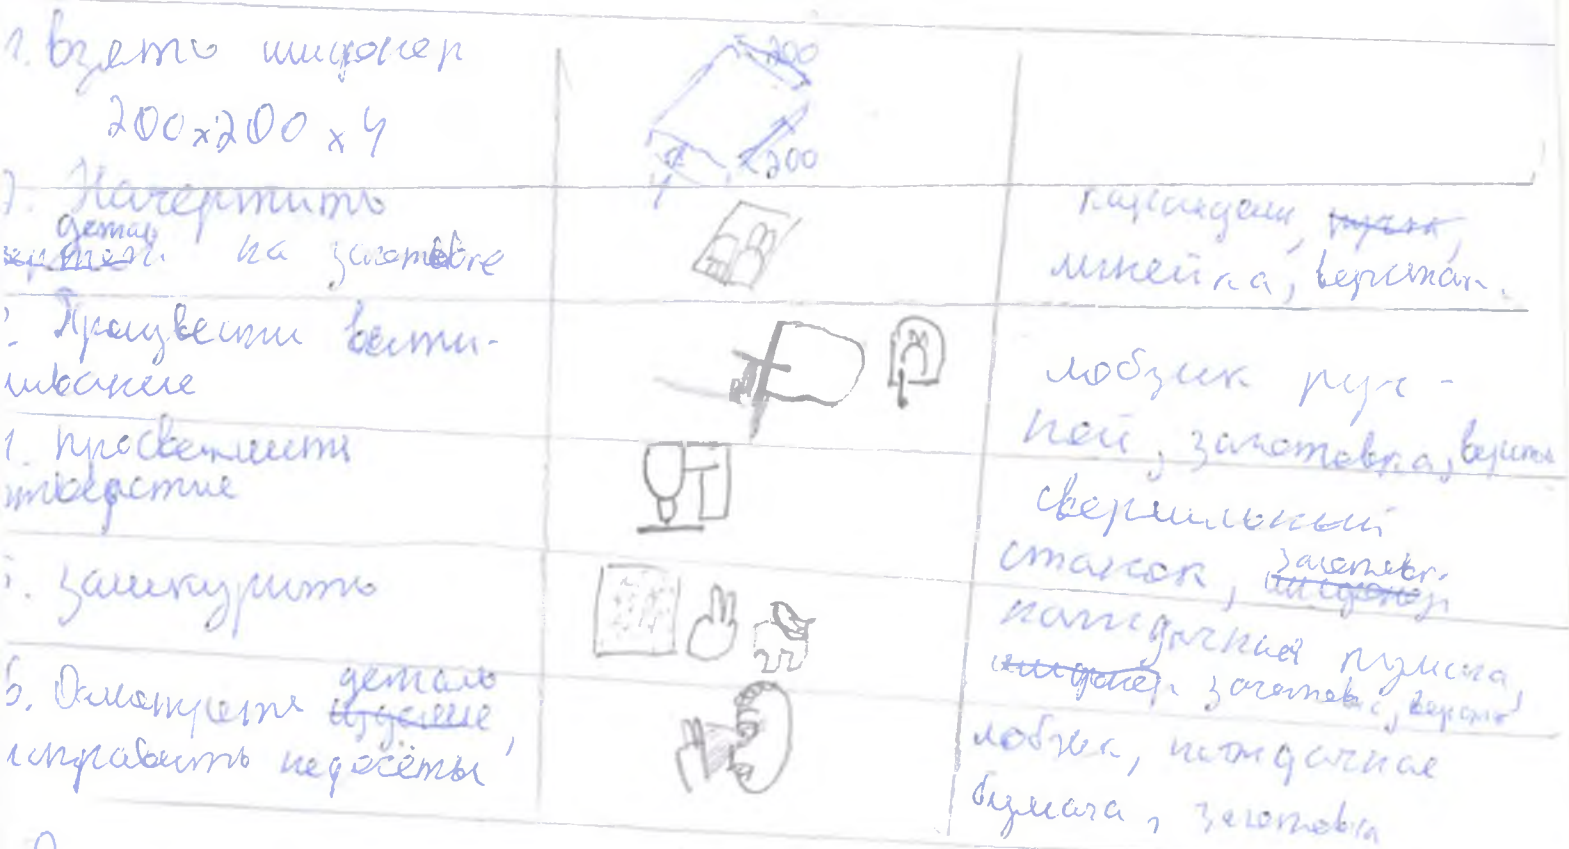 1. Взято шифонер
200x200 x 4
200
200
4
2. Начертить
деталь
на заготовке
карандаш, ручка,
линейка, верстак.
3. Произвести выпи-
ливание
лобзик руч-
ной, заготовка, верстак
4. просверлить
отверстие
сверлильный
станок, заготовка
шифонер
5. зашкурить
наждачная бумага,
шифонер заготовка, верстак
6. Осмотреть деталь
изделие,
исправить недочёты
лобзик, наждачная
бумага, заготовка